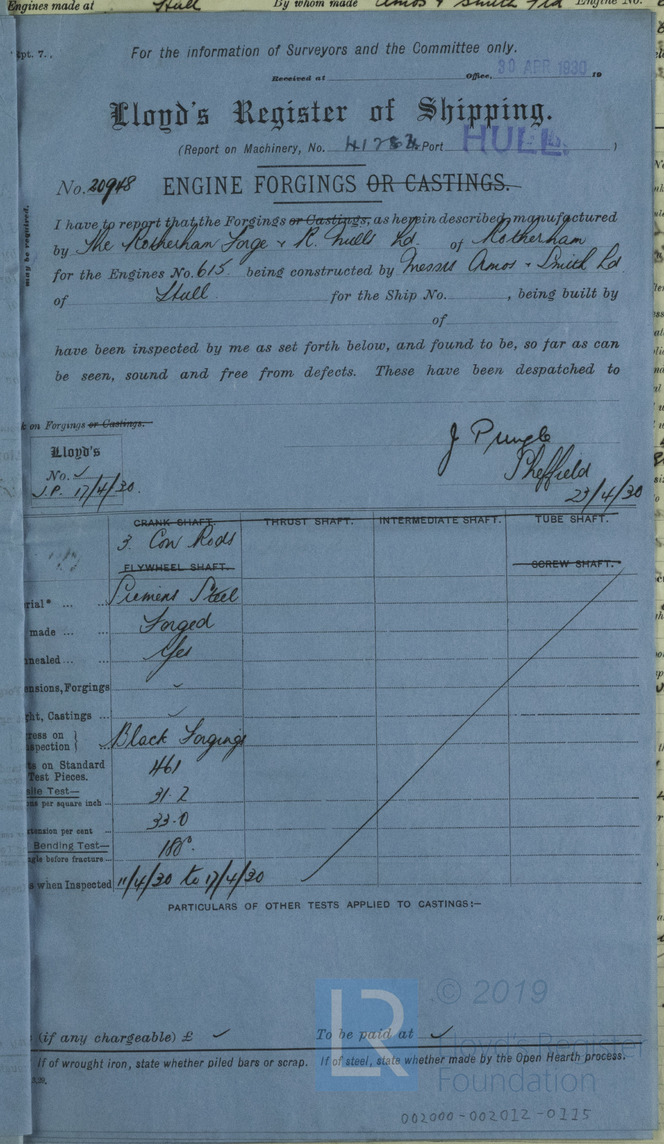 Engines made at Hull By whom made Amos & Smith Ltd Engine No.
For the information of Surveyors and the Committee only.
Received at Office, 30 APR 1930 19
Lloyd's Register of Shipping.
(Report on Machinery, No. Port HULL. )
No. 20948 ENGINE FORGINGS OR CASTINGS.
I have to report that the Forgings or Castings, as herein described, manufactured
by The Rotherham Forge & R. Mills Ld. of Rotherham
for the Engines No. 615 being constructed by Messrs Amos & Smith Ld
of Hull for the Ship No. , being built by
of
have been inspected by me as set forth below, and found to be, so far as can
be seen, sound and free from defects. These have been despatched to
on Forgings or Castings.
may be required.
Lloyd's
No. ✓
J.P. 17/4/30.
J Pringle
Sheffield
23/4/30
CRANK SHAFT. THRUST SHAFT. INTERMEDIATE SHAFT. TUBE SHAFT.
3. Con Rods
FLYWHEEL SHAFT. SCREW SHAFT.
rial* ... ... Siemens Steel
made ... ... Forged
nealed... ... Yes
ensions, Forgings ✓
ght, Castings ... ✓
ress on
spection } ... Black Forgings
ts on Standard
Test Pieces. 461
sile Test—
ons per square inch ... 31.2
xtension per cent 33.0
Bending Test—
ngle before fracture... 180°.
s when Inspected 11/4/30 to 17/4/30
PARTICULARS OF OTHER TESTS APPLIED TO CASTINGS:—
(if any chargeable) £ ✓ To be paid at ✓
If of wrought iron, state whether piled bars or scrap. If of steel, state whether made by the Open Hearth process.
© 2019
LR
Lloyd's Register
Foundation
002000-002012-0115